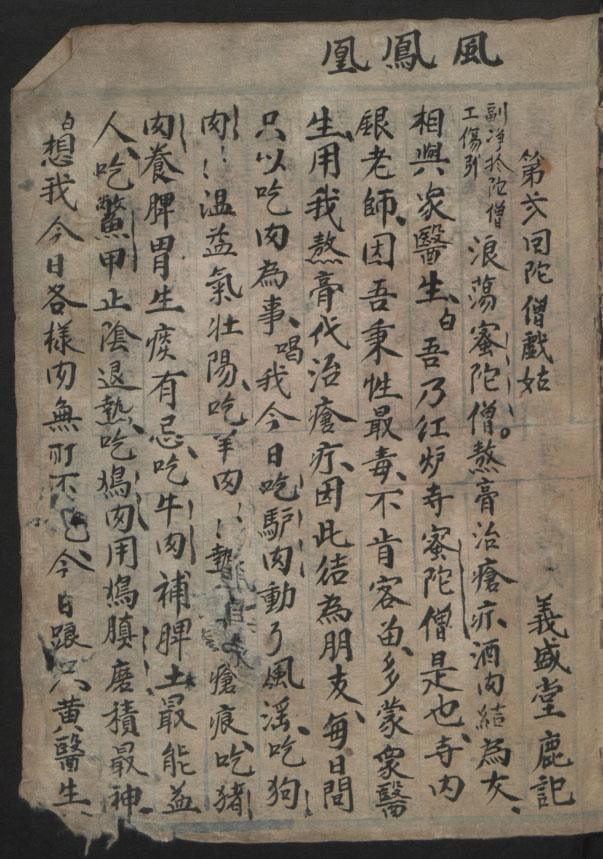 風鳳凰
第弍回陀僧戲姑 義盛堂鹿記
副净扮陀僧
工傷引
浪蕩蜜陀僧。熬膏治瘡疔酒肉結為友
相與家醫生白吾乃红炉寺蜜陀僧是也寺内
銀老師因吾秉性最毒不肯容留多蒙衆醫
生用我熬膏代治瘡疔因此结為朋友每日間
只以吃肉為事唱我今日吃馿肉動了風淫吃狗
肉〻温益氣壯陽吃羊肉〻熱瘡痕吃猪
肉養脾胃生痰有忌吃牛肉補脾土最能益
人吃鱉甲止陰退熱吃肉用磨積最神
白想我今日各樣肉無所不吃今日黄醫生